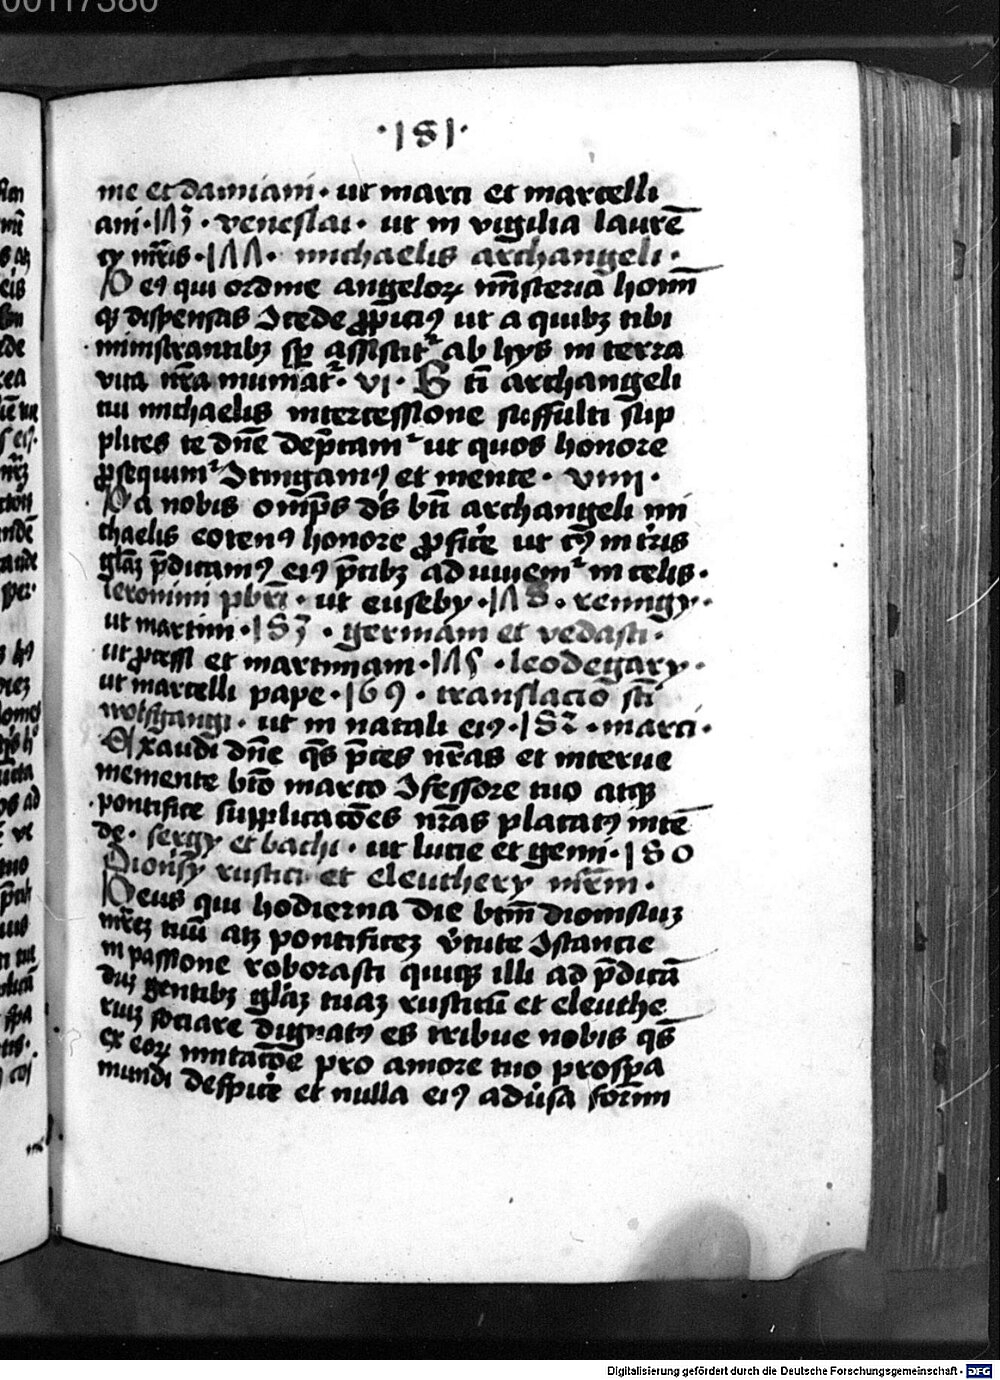 00117380
·181·
me et damiani· ut marci et marcelli
ani· · veneslai· ut in vigilia laurē
cÿ mr̄is·1ΛΛ· michaelis archangeli·
Deꝰ qui ordine angeloꝝ mīsteria homī
qꝫ dispensas ɔcede ꝓpiciꝰ ut a quibꝫ tibi
ministrantibꝫ sꝑ assistit᷑ ab hÿs in terra
vita nr̄a muniat᷑· vi· B tī archangeli
tui michaelis intercessione suffulti sup
plices te dn̄e dep̄cam᷑ ut quos honore
ꝓsequim᷑ ɔtingamꝰ et mente· viiii·
Da nobis om̄ps ds̄ bt̄i archangeli mi
chaelis eotenꝰ honore ꝓfic̄e ut cꝰ in tr̄is
gl̄aꝫ p̄dicamꝰ eiꝰ p̄cibꝫ adiuuem᷑ in celis·
ieronimi pbr̄i· ut eusebÿ·1Λ8· remigÿ·
ut martini·183· germani et vedasti·
ut ꝓcessi et martiniani·1Λ5· leodegarÿ·
ut marcelli pape·169· translacio sc̄ti
wolfgangi· ut in natali eiꝰ·182·marci·
Exaudi dn̄e qs̄ p̄ces nr̄as et interue
memente bt̄o marco ɔfessore tuo atqꝫ
pontifice supplicacōes nr̄as placatꝰ intē
de· sergÿ et bachi· ut lucie et gemi·180
Dionisÿ rustici et eleutherÿ mr̄m·
Deus qui hodierna die btm̄ dionisiuꝫ
mr̄eꝫ tuū atqꝫ pontificeꝫ v̄tute ɔstancie
in passione roborasti quiqꝫ illi ad p̄dicā
duꝫ gentibꝫ gl̄aꝫ tuaꝫ rusticū et eleuthe
riuꝫ sociare dignatꝰ es tribue nobis qs̄
ex eoꝝ imitacōe pro amore tuo prosꝑa
mundi despic̄e et nulla eiꝰ adūsa formi
Digitalisierung gefördert durch die Deutsche Forschungsgemeinschaft - DFG